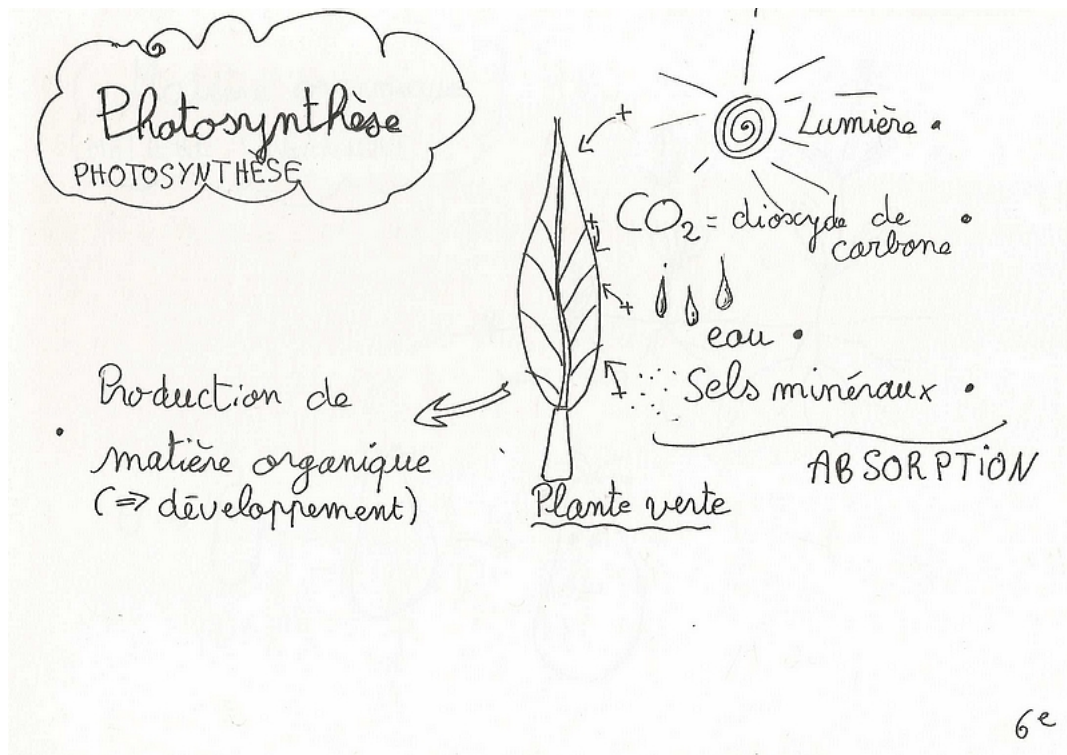 Photosynthèse
PHOTOSYNTHÈSE
Lumière
CO₂ = dioxyde de
carbone
eau
Sels minéraux
ABSORPTION
Production de
matière organique
(⇒ développement)
Plante verte
6e